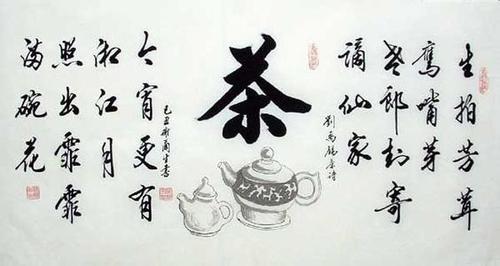 生拍芳茸
鷹嘴芽
老郎封寄
謫仙家
劉禹錫茶诗
茶
今宵更有
湘江月
照出霏霏
滿碗花
己丑 生書